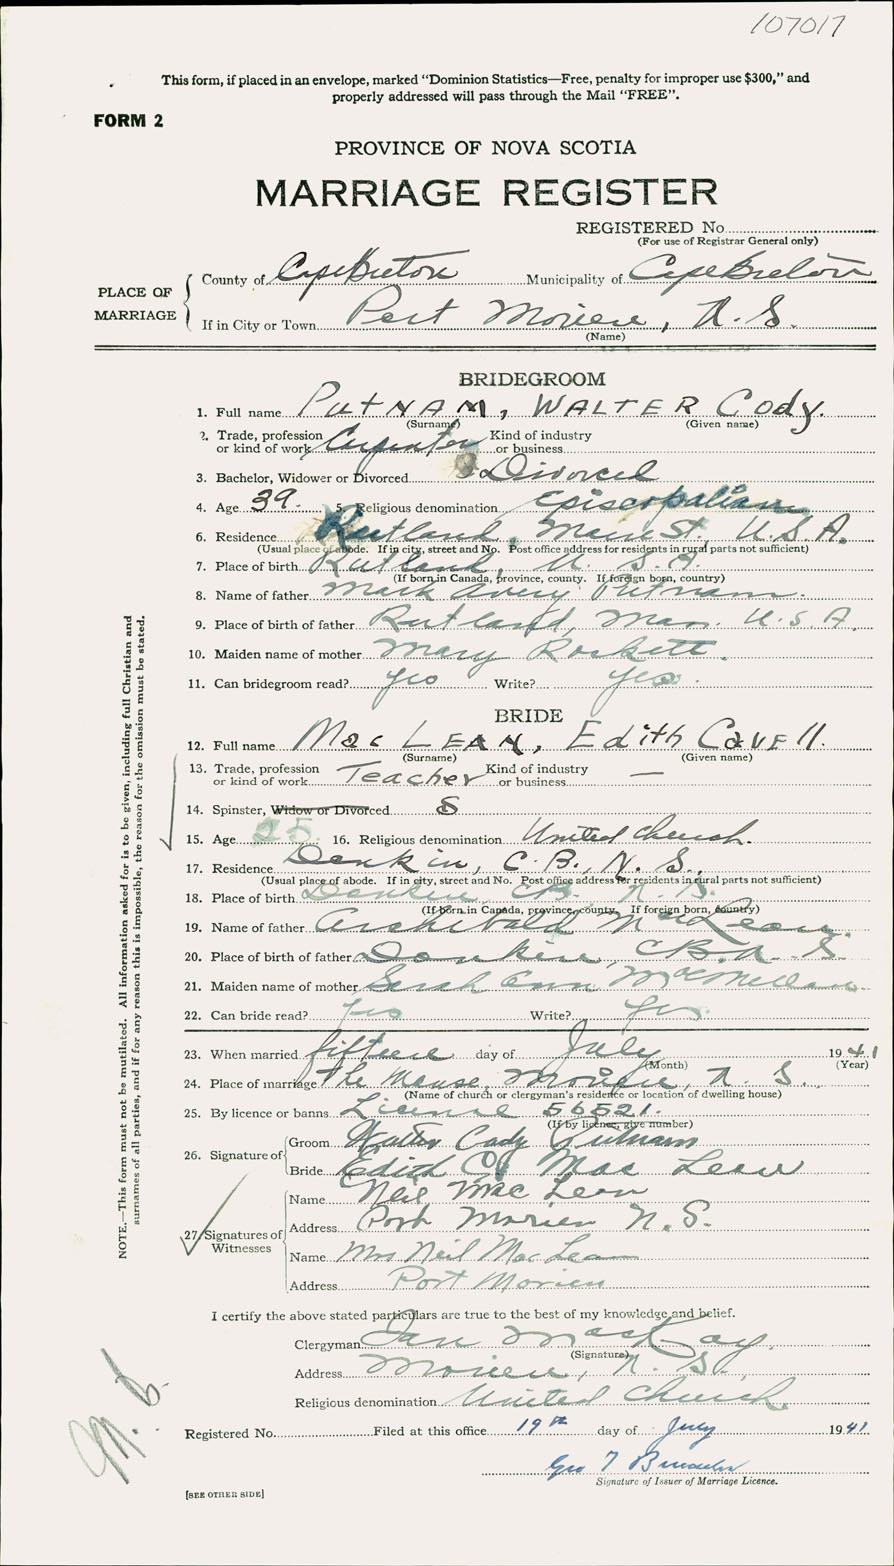 107017
This form, if placed in an envelope, marked “Dominion Statistics—Free, penalty for improper use $300,” and
properly addressed will pass through the Mail “FREE”.
FORM 2
PROVINCE OF NOVA SCOTIA
MARRIAGE REGISTER
REGISTERED No.
(For use of Registrar General only)
PLACE OF MARRIAGE
County of Cape Breton Municipality of Cape Breton
If in City or Town Port Morien, N. S.
(Name)
BRIDEGROOM
1. Full name Putnam, Walter Cody.
(Surname) (Given name)
2. Trade, profession or kind of work Carpenter Kind of industry or business
3. Bachelor, Widower or Divorced Divorced
4. Age 39. 5. Religious denomination Episcopalian
6. Residence Rutland, Main St. U.S.A.
(Usual place of abode. If in city, street and No. Post office address for residents in rural parts not sufficient)
7. Place of birth Rutland, U.S.A.
(If born in Canada, province, county. If foreign born, country)
8. Name of father Mark Avery Putnam.
9. Place of birth of father Rutland, Mass. U.S.A.
10. Maiden name of mother Mary Rockett.
11. Can bridegroom read? yes Write? yes.
BRIDE
12. Full name MacLean, Edith Cavell.
(Surname) (Given name)
13. Trade, profession or kind of work Teacher Kind of industry or business —
14. Spinster, Widow or Divorced S
15. Age 25 16. Religious denomination United Church.
17. Residence Donkin, C.B., N.S.,
(Usual place of abode. If in city, street and No. Post office address for residents in rural parts not sufficient)
18. Place of birth Donkin, CB. N.S.
(If born in Canada, province, county. If foreign born, country)
19. Name of father Archibald MacLean.
20. Place of birth of father Donkin, CB. N.S.
21. Maiden name of mother Sarah Ann MacMillan.
22. Can bride read? yes Write? yes.
23. When married fifteen day of July 1941
(Month) (Year)
24. Place of marriage The Manse, Morien, N. S.
(Name of church or clergyman's residence or location of dwelling house)
25. By licence or banns License 56521.
(If by licence, give number)
26. Signature of
Groom Walter Cody Putnam
Bride Edith C. MacLean
27. Signatures of Witnesses
Name Neil MacLean
Address Port Morien N.S.
Name Mrs Neil MacLean
Address Port Morien
I certify the above stated particulars are true to the best of my knowledge and belief.
Clergyman Ian MacKay.
(Signature)
Address Morien, N. S.
Religious denomination United Church.
Registered No. Filed at this office 19th day of July 1941
Geo T
Signature of Issuer of Marriage Licence.
[SEE OTHER SIDE]
NOTE.—This form must not be mutilated. All information asked for is to be given, including full Christian and
surnames of all parties, and if for any reason this is impossible, the reason for the omission must be stated.